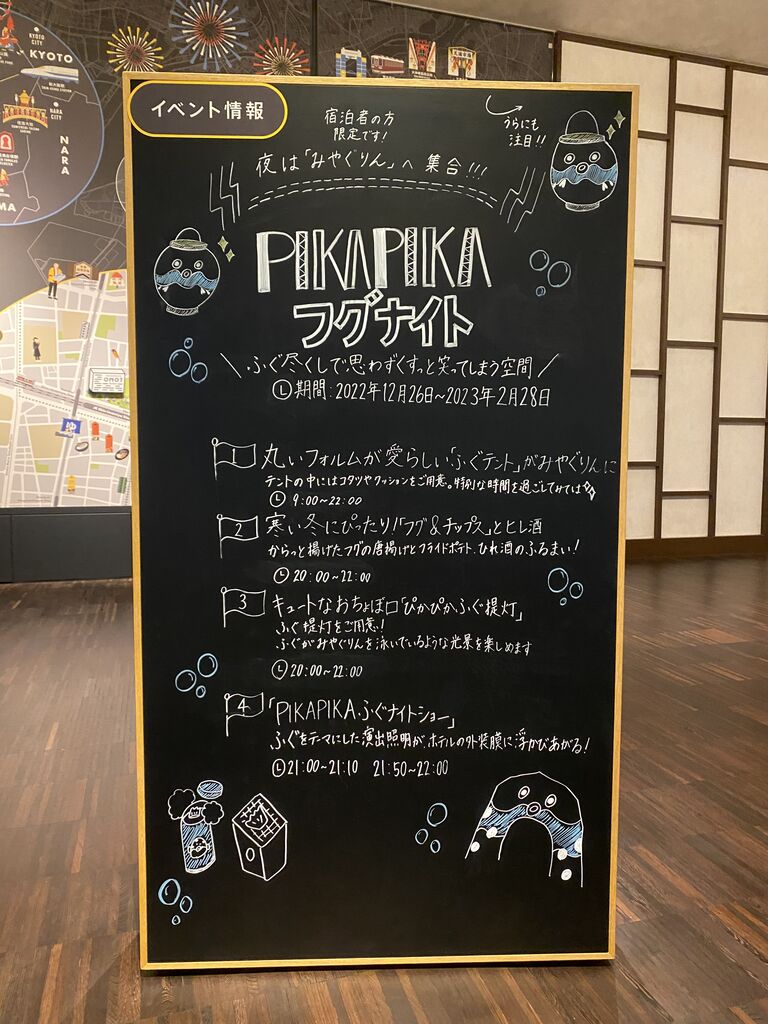 イベント情報
宿泊者の方
限定です!
うらにも
注目!!
夜は「みやぐりん」へ 集合!!!
PIKAPIKA
フグナイト
\ ふぐ尽くしで思わずくすっと笑ってしまう空間 /
期間:2022年12月26日~2023年2月28日
1 丸いフォルムが愛らしい「ふぐテント」がみやぐりんに
テントの中にはコタツやクッションをご用意。特別な時間を過ごしてみては
9:00~22:00
2 寒い冬にぴったり!「フグ&チップス」とヒレ酒
からっと揚げたフグの唐揚げとフライドポテト、ひれ酒のふるまい!
20:00~22:00
3 キュートなおちょぼ口「ぴかぴかふぐ提灯」
ふぐ提灯をご用意!
ふぐがみやぐりんを泳いでいるような光景を楽しめます
20:00~22:00
4 「PIKAPIKAふぐナイトショー」
ふぐをテーマにした演出照明が、ホテルの外装膜に浮かびあがる!
21:00~21:10 21:50~22:00
KYOTO
CITY
KYOTO
NARA
CITY
NARA
OMO7